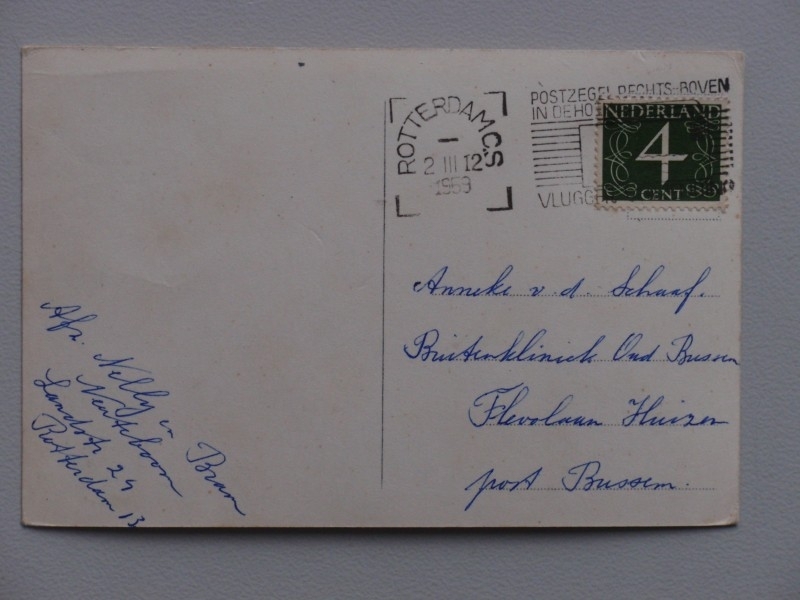 ROTTERDAM C.S
I
2 III 12
1959
POSTZEGEL RECHTS-BOVEN
IN DE HO
VLUGGE
NEDERLAND
4
CENT
Anneke v. d. Schaaf.
Buitenkliniek Oud Bussem
Flevolaan Huizen
post Bussem.
Afz. Nelly en Bram
Neuteboom
Landstr 29
Rotterdam 13